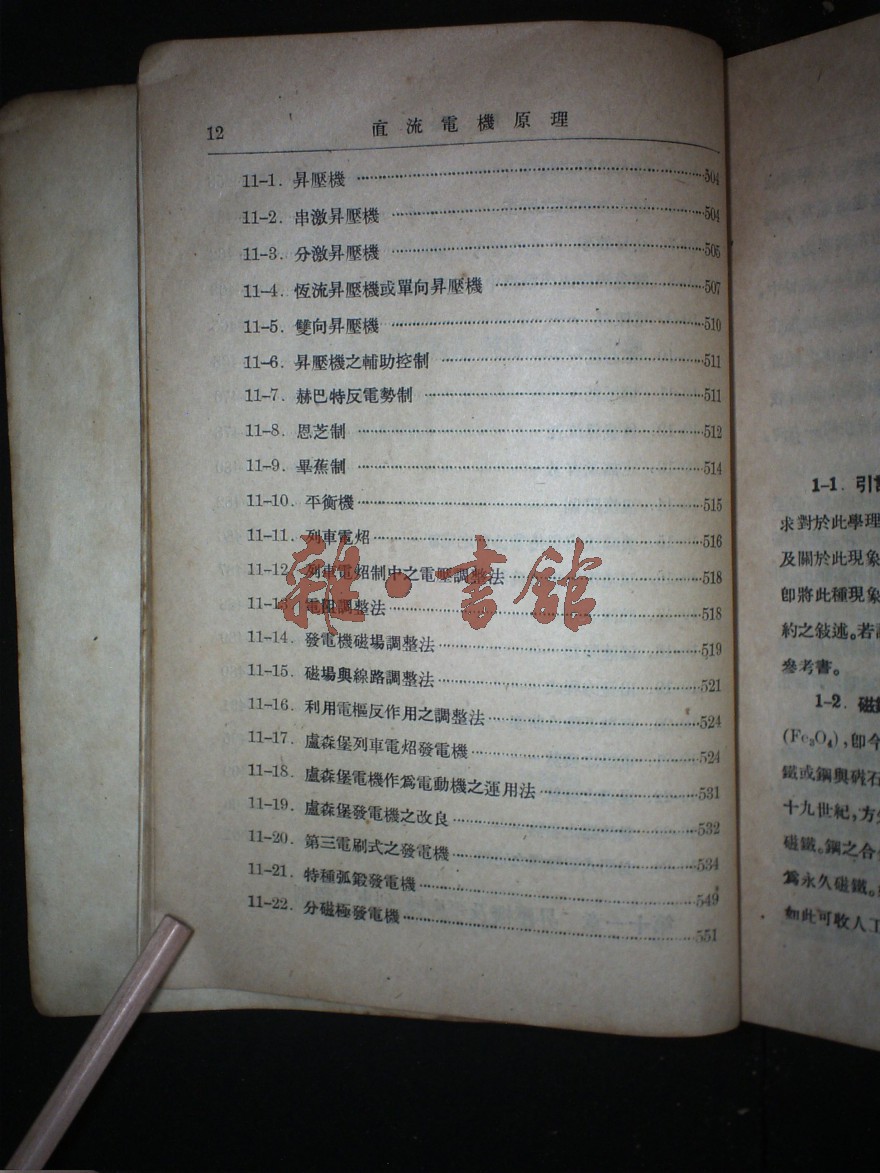 12
直流電機原理
11-1. 昇壓機 504
11-2. 串激昇壓機 504
11-3. 分激昇壓機 505
11-4. 恆流昇壓機或單向昇壓機 507
11-5. 雙向昇壓機 510
11-6. 昇壓機之輔助控制 511
11-7. 赫巴特反電勢制 511
11-8. 恩芝制 512
11-9. 畢蕉制 514
11-10. 平衡機 515
11-11. 列車電炤 516
11-12. 列車電炤制中之電壓調整法 518
11-13. 電阻調整法 518
11-14. 發電機磁場調整法 519
11-15. 磁場與線路調整法 521
11-16. 利用電樞反作用之調整法 524
11-17. 盧森堡列車電炤發電機 524
11-18. 盧森堡電機作爲電動機之運用法 531
11-19. 盧森堡發電機之改良 532
11-20. 第三電刷式之發電機 534
11-21. 特種弧鍛發電機 549
11-22. 分磁極發電機 551
雜·書館
1-1. 引
求對於此學理
及關於此現象
即將此種現象
約之敍述。若
參考書。
1-2. 磁
(Fe₃O₄),卽今
鐵或鋼與磁石
十九世紀,方
磁鐵。鋼之合
爲永久磁鐵。
如此可收人工